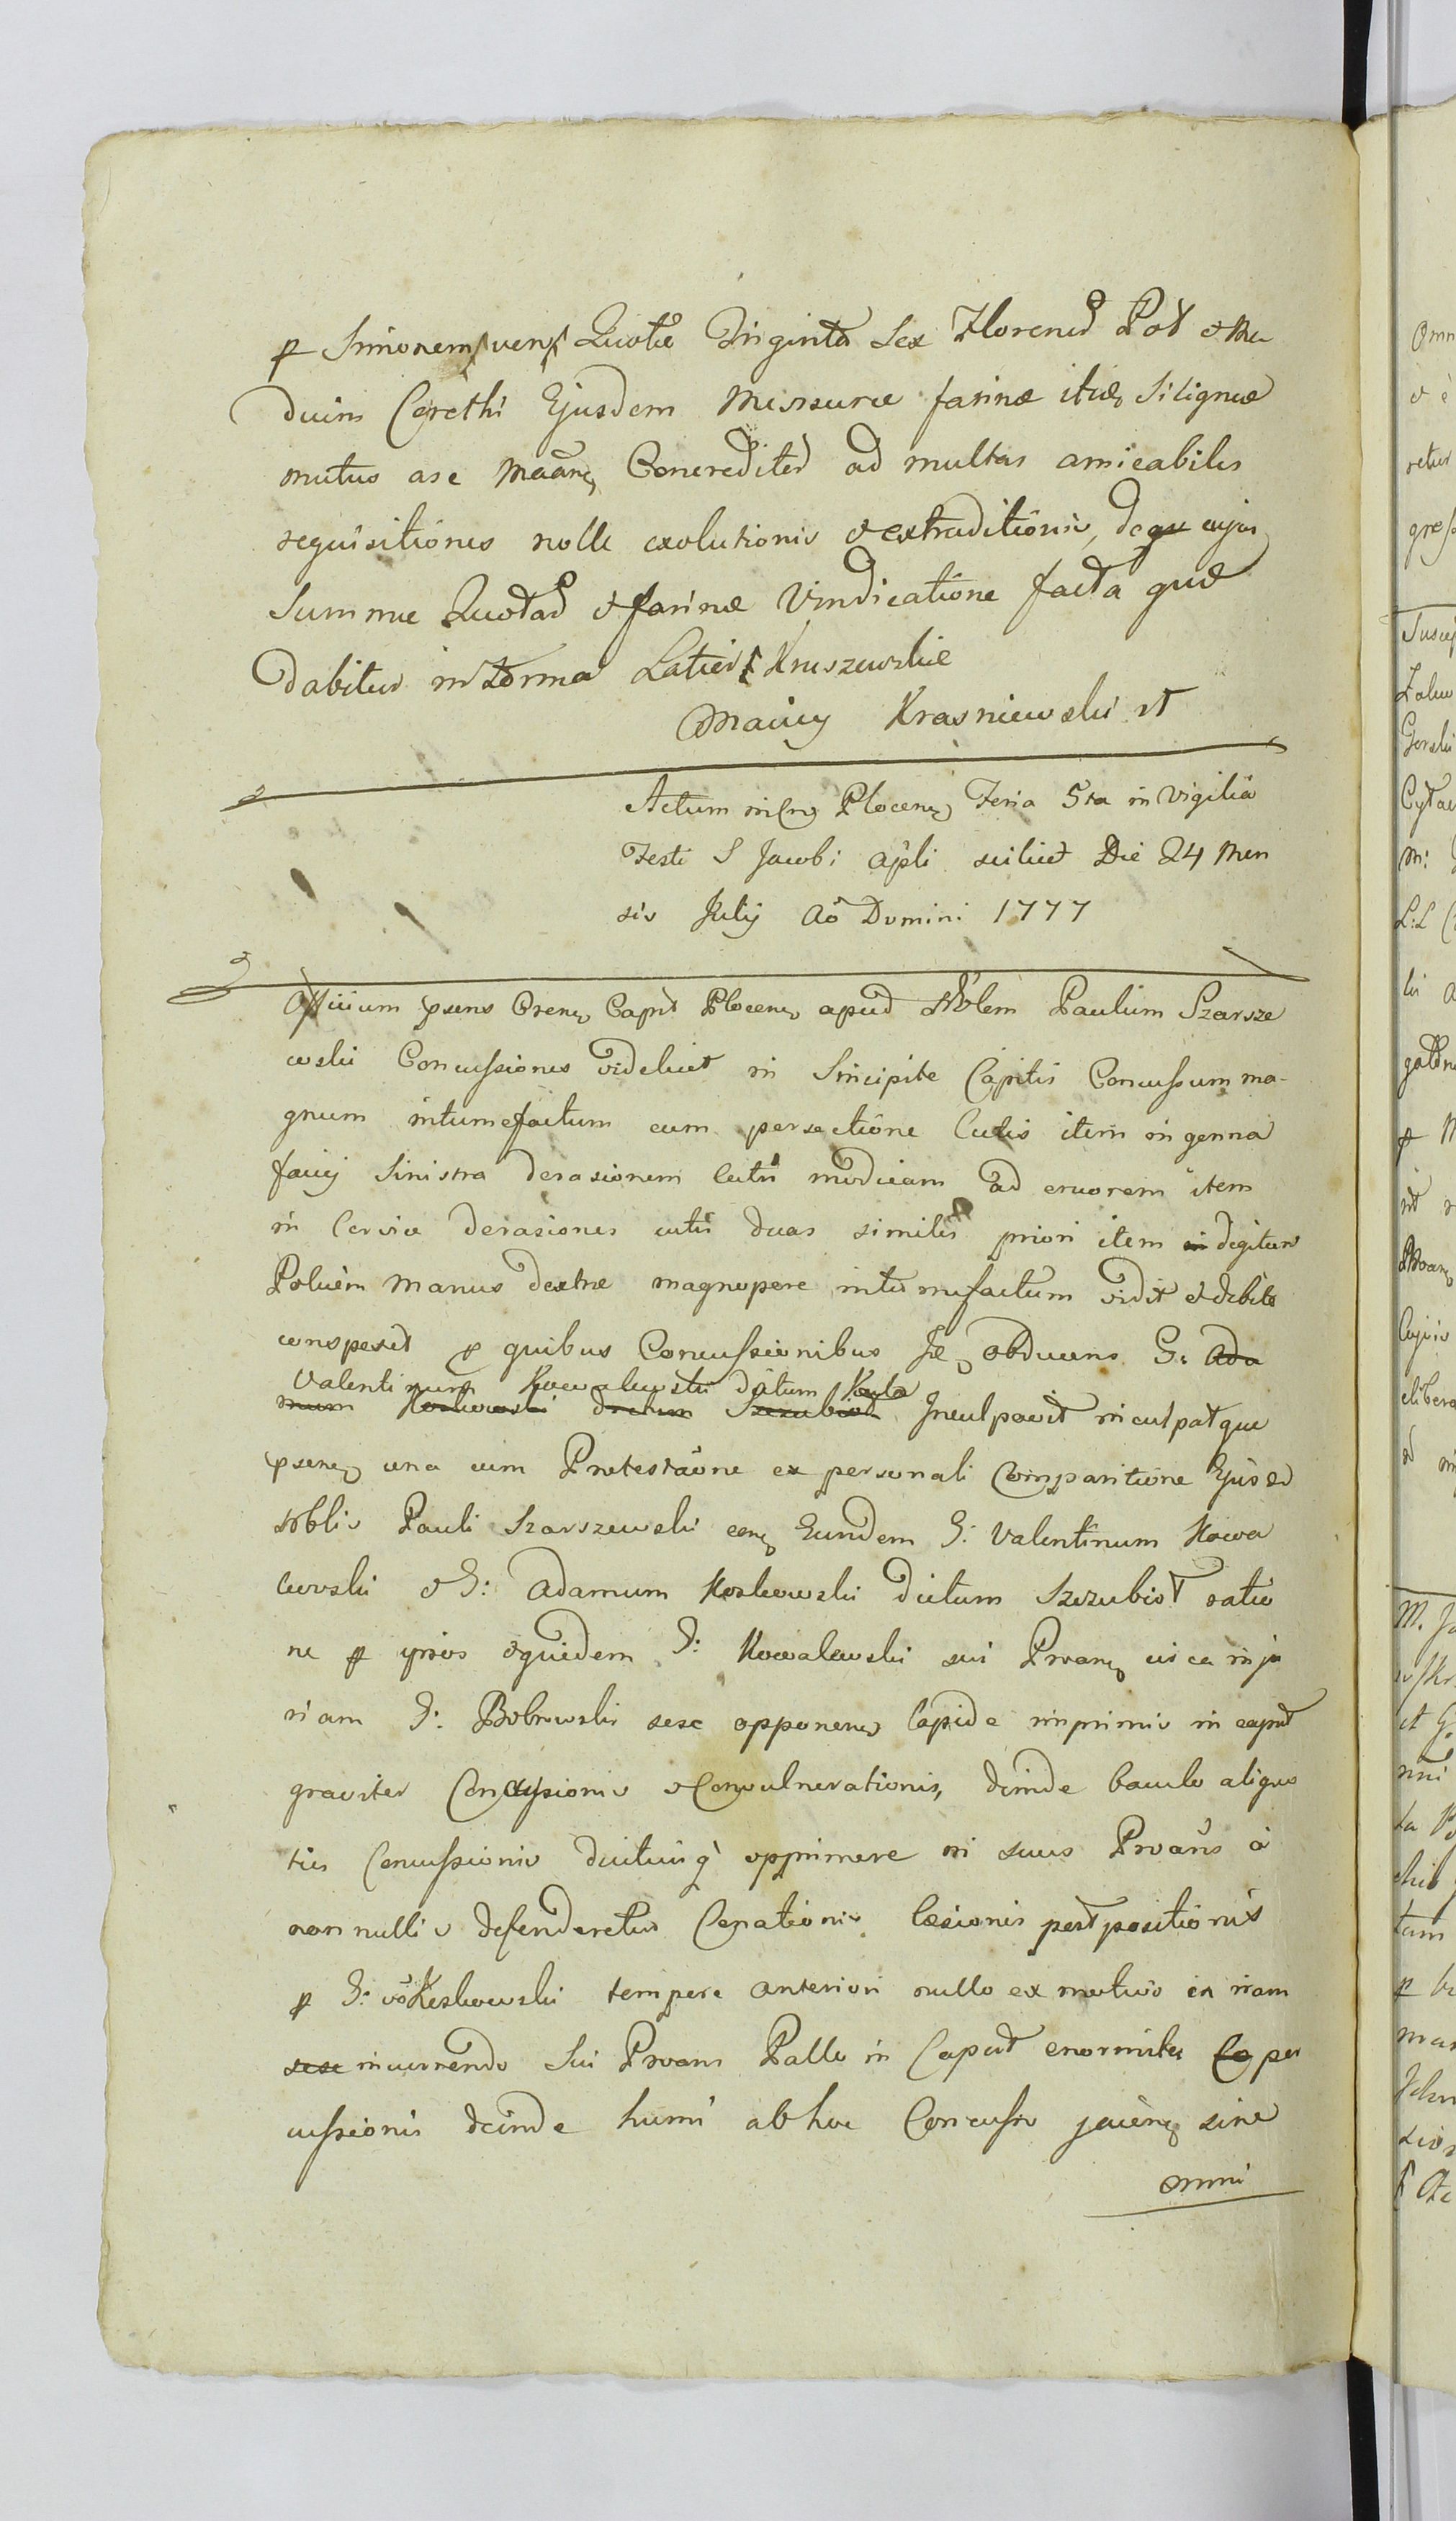 Simonem Quotæ Triginta Sex Florenos Pol et Me
dium Corethi Ejusdem Messuræ farinæ Siligneæ
mutuo a se Concreditos ad multas amicabiles
requisitiones nolle exolutionis et extraditionis, deque cujus
Summæ Quotæ et farinæ Vindicatione facta quæ
dabitur in Forma Latius Kruszewskie
Krasniewski st
Actum in Plocen Feria 5ta in Vigilia
Festi S Jacobi apli scilicet Die 24 Men
sis Julij Aō Domini 1777
Officium psens Capit Plocen apud Noblem Paulum Szarsze
wski Concussiones videlicet in Sincipite Capitis Concussum ma-
gnum intumefactum cum persectione Cutis item in genna
faciej Sinistra derasionem cutis modicam ad cruorem item
in Cervice derasiones cutis duas similes priori item in digitum
Policem Manus dextræ magnopere intumefactum vidit et debite
conspexit p quibus Concussionibus Se obducens G: Ada
Valentinum Kowalewski dictum Kula
mum Koskowski dictum Szczubiot Inculpavit inculpatque
psen una cum Protestaōne ex personali Comparitione Ejusd
Noblis Pauli Szarszewski con Eundem G: Valentinum Kowa
lewski et G: Adamum Koskowski dictum Szczubiot ratio
ne p ipsos et quidem G: Kowalewski sui Proan circa inju
riam G: Bobrowski sese opponen lapide imprimis in caput
graviter Concussionis et Convulnerationis, deinde baculo aliquo
ties Concussionis opprimere ni suus Proans à
non nullis defenderetur Conationis læsionis post positionis
p G: vō Koskowski tempore anteriori nullo ex motivo in viam
sese incurrendo Sui Proans Pallo in Caput enormiter Co per
cussionis deinde humi ab hoc Concussu jacèn sine
omni